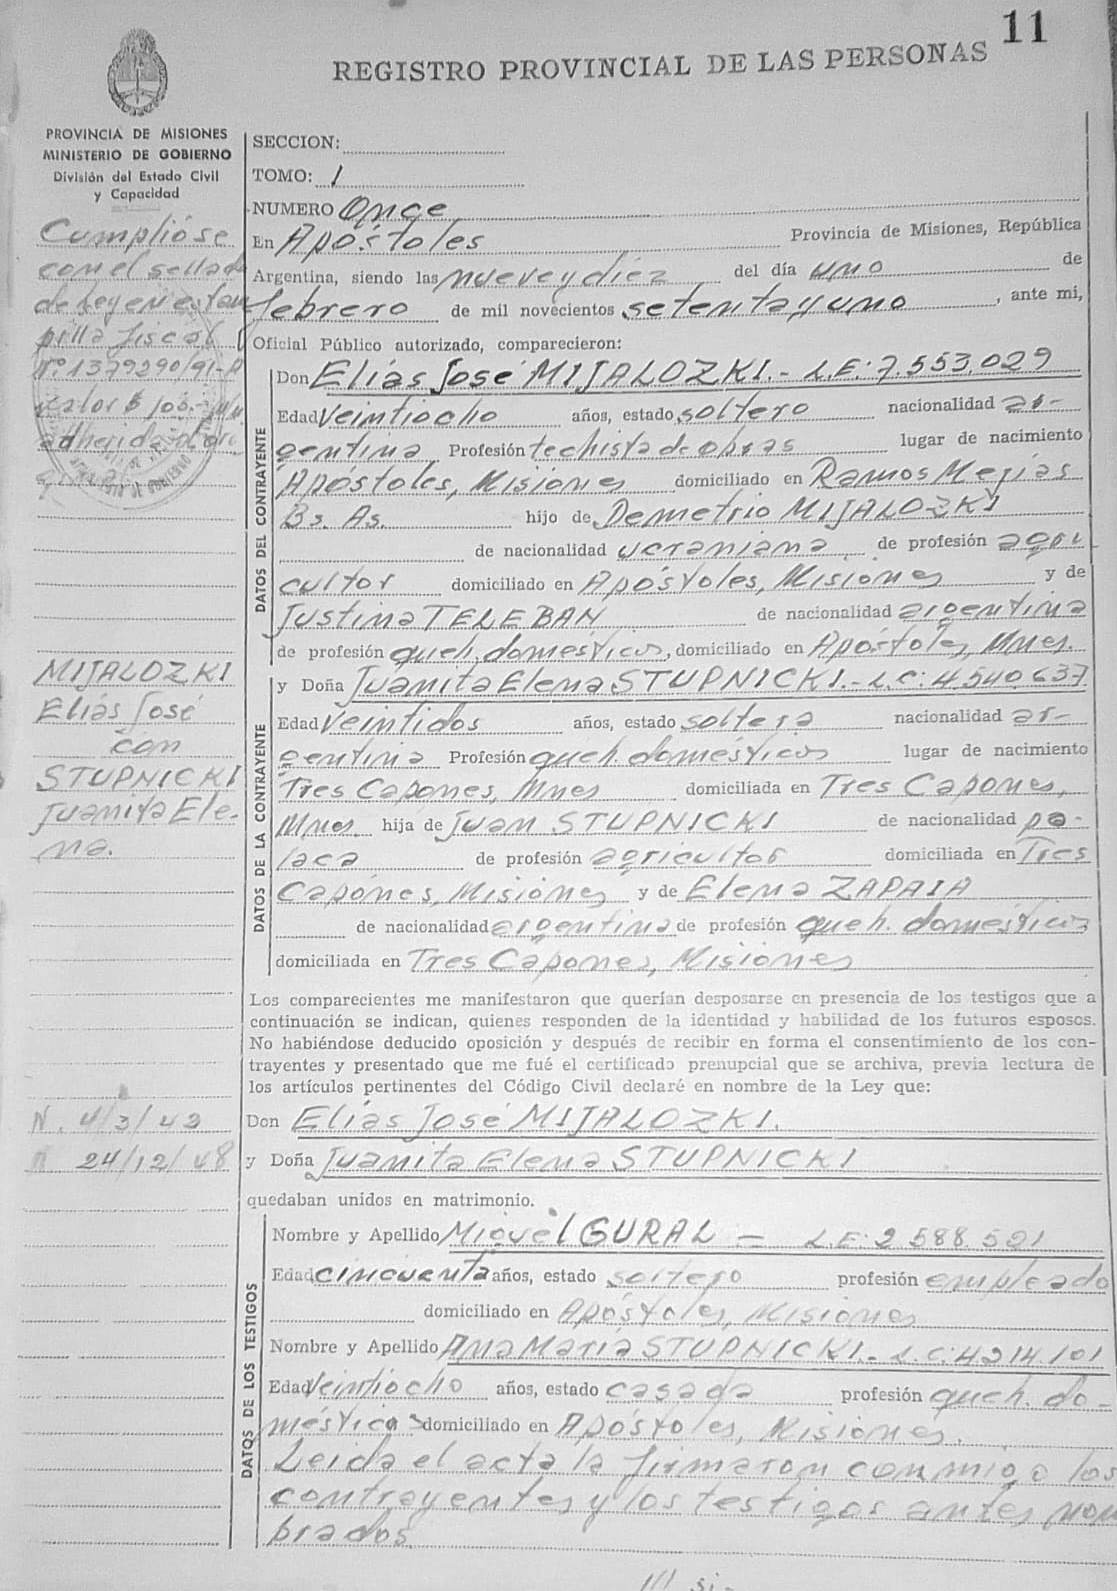 11
REGISTRO PROVINCIAL DE LAS PERSONAS
PROVINCIA DE MISIONES
MINISTERIO DE GOBIERNO
División del Estado Civil
y Capacidad
Cumplióse
con el sellado
de Ley en estam
pilla fiscal
Nº 1379290/91-A
valor $ 100.-
adherida
MIJALOZKI
Elías José
con
STUPNICKI
Juanita Ele-
na.
N. 4/3/42
N 24/12/48
SECCION:
TOMO: 1
NUMERO Once
En Apóstoles Provincia de Misiones, República
Argentina, siendo las nueve y diez del día uno de
febrero de mil novecientos setenta y uno, ante mi,
Oficial Público autorizado, comparecieron:
DATOS DEL CONTRAYENTE
Don Elías José MIJALOZKI.- L.E: 7.553.029
Edad Veintiocho años, estado soltero nacionalidad ar-
gentina Profesión techista de obras lugar de nacimiento
Apóstoles, Misiones domiciliado en Ramos Mejías
Bs. As. hijo de Demetrio MIJALOZKI
de nacionalidad ucraniana de profesión agri
cultor domiciliado en Apóstoles, Misiones y de
Justina TELEBAN de nacionalidad argentina
de profesión queh. domésticos, domiciliado en Apóstoles, Mnes.
DATOS DE LA CONTRAYENTE
y Doña Juanita Elena STUPNICKI.- L.C: 4.540.637
Edad Veintidos años, estado soltera nacionalidad ar-
gentina Profesión queh. domésticos lugar de nacimiento
Tres Capones, Mnes domiciliada en Tres Capones,
Mnes. hija de Juan STUPNICKI de nacionalidad po-
laca de profesión agricultor domiciliada en Tres
Capones, Misiones y de Elena ZAPAIA
de nacionalidad argentina de profesión queh. domésticos
domiciliada en Tres Capones, Misiones
Los comparecientes me manifestaron que querían desposarse en presencia de los testigos que a
continuación se indican, quienes responden de la identidad y habilidad de los futuros esposos.
No habiéndose deducido oposición y después de recibir en forma el consentimiento de los con-
trayentes y presentado que me fué el certificado prenupcial que se archiva, previa lectura de
los artículos pertinentes del Código Civil declaré en nombre de la Ley que:
Don Elías José MIJALOZKI.
y Doña Juanita Elena STUPNICKI
quedaban unidos en matrimonio.
DATOS DE LOS TESTIGOS
Nombre y Apellido Miguel GURAL — L.E: 2.588.521
Edad cincuenta años, estado soltero profesión empleado
domiciliado en Apóstoles, Misiones
Nombre y Apellido Ana María STUPNICKI.- L.C: 4214.101
Edad Veintiocho años, estado casada profesión queh. do-
mésticos domiciliado en Apóstoles, Misiones.
Leida el acta la firmaron conmigo los
contrayentes y los testigos antes nom
brados.